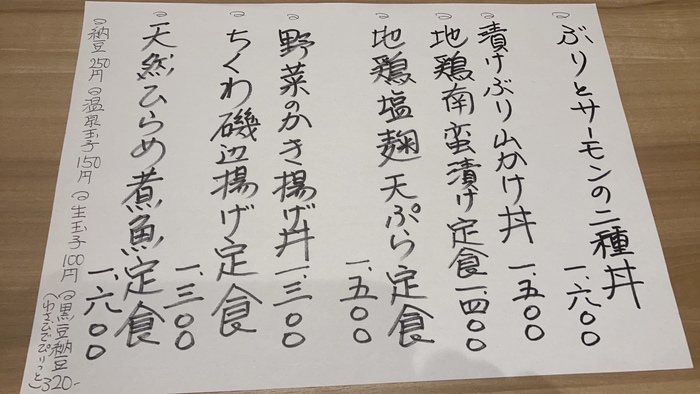 ぶりとサーモンの二種丼 一、六〇〇
漬けぶり山かけ丼 一、五〇〇
地鶏南蛮漬け定食 一、四〇〇
地鶏塩麹天ぷら定食 一、五〇〇
野菜のかき揚げ丼 一、三〇〇
ちくわ磯辺揚げ定食 一、三〇〇
天然ひらめ煮魚定食 一、六〇〇
納豆 250円 温泉玉子 150円 生玉子 100円
黒豆納豆 320-
(わさびでぴりっと)